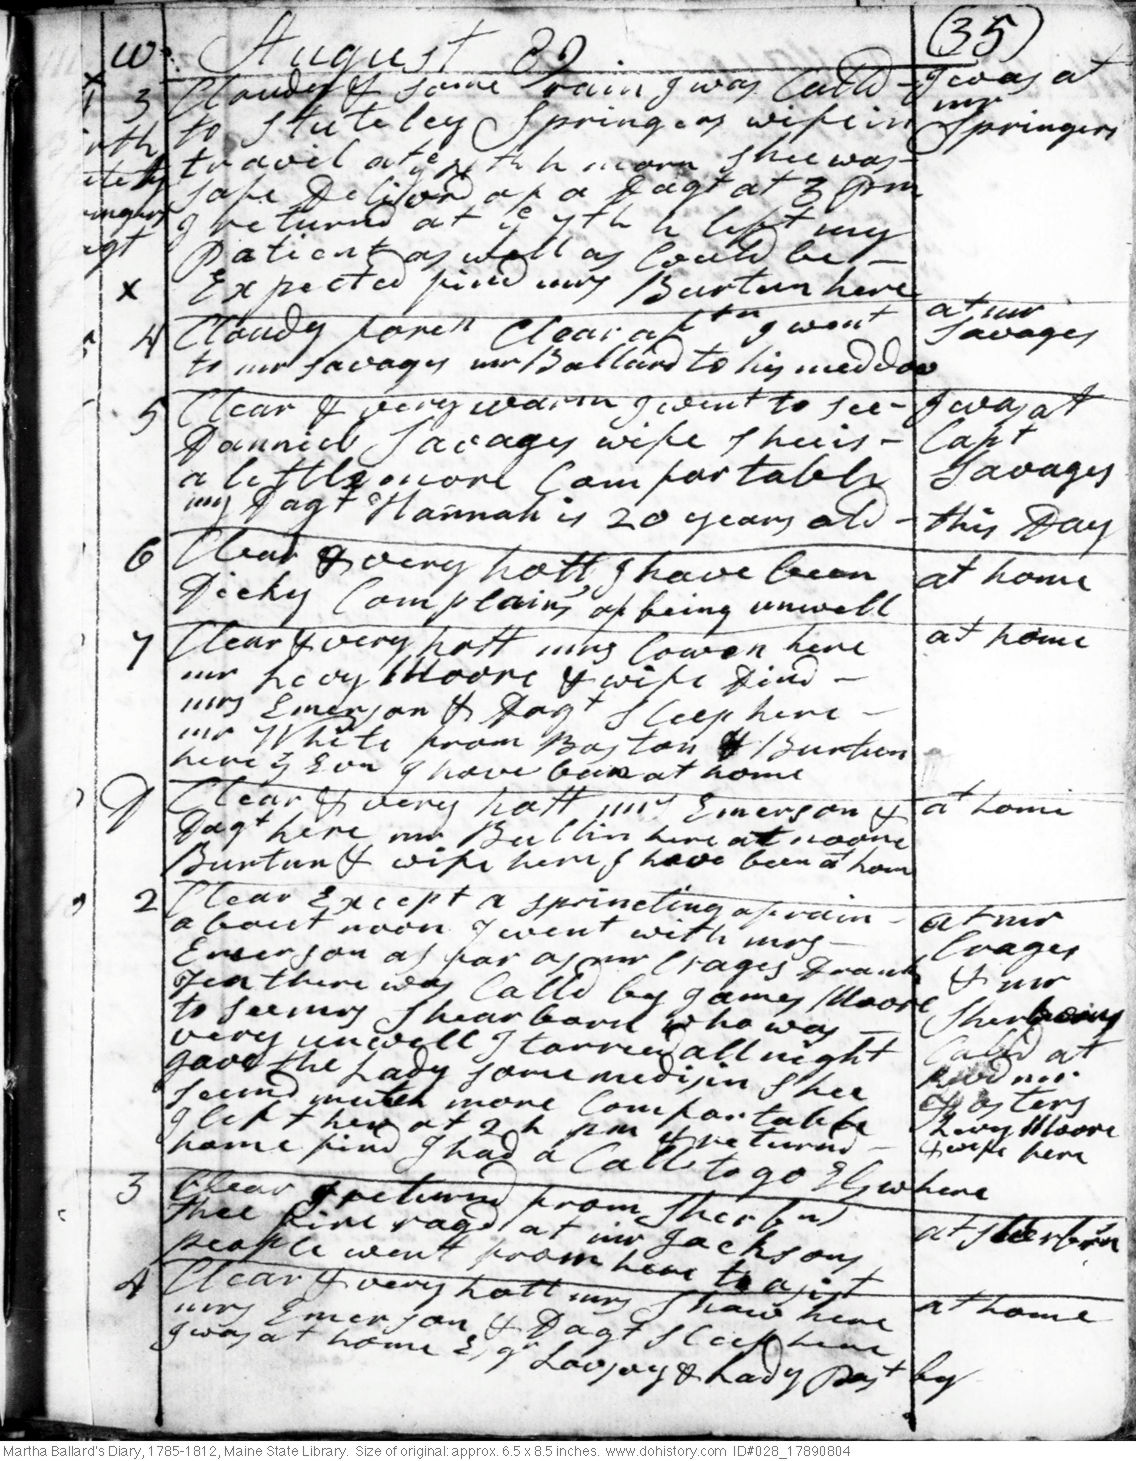 (35)
W. August 89
3 Cloudy & some rain I was Calld -
to Stuteley Springers wife in
travil at ye 7th h morn shee was -
safe Deliverd of a Dagt at 3 pm
I returnd at ye 7th h left my
patient as well as Could be -
x Expected find mrs Burtun here
I was at
mr
Springers
x
irth
uteley
ringers
agt
4 Cloudy foren Clear aftn I went
to mr Savages mr Ballard to his meddow
at mr
Savages
5 Clear & very warm I went to see -
Danniel Savages wife shee is -
a little more Comfortable
my Dagt Hannah is 20 years old -
I was at
Capt
Savages
this Day
6 Clear & very hott I have been
Dicky Complains of being unwell
at home
7 Clear & very hott mrs Cowen here
mr Levy Moore & wife Dind -
mrs Emerson & Dagt Sleep here -
mr White from Boston & Burtun
here ys Evn I have been at home
at home
Clear & very hott mrs Emerson &
Dagt here mr Bullin here at noone
Burtun & wife here I have been at home
at home
2 Clear Except a sprincling of rain -
about noon I went with mrs -
Emerson as far as mr Crages Drank
Tea there was Calld by James Moore
to see mrs Shearbarn who was -
very unwell I tarried all night
gave the Lady some medisin shee
seemd much more Comfortable
I left her at 2 h pm & returnd -
home find I had a Call to go Elswhere
at mr
Crages
& mr
Sherborns
Calld at
mr
Fosters
Levy Moore
& wife here
3 Clear I returnd from Sherbns
thee fire ragd at mr Jacksons
people went from here to asist
at Sherborn
4 Clear & very hott mrs Shaw here
mrs Emerson & Dagt Sleep here
I was at home Esqr Lovjoy & Lady Past by
at home
Martha Ballard's Diary, 1785-1812, Maine State Library. Size of original: approx. 6.5 x 8.5 inches. www.dohistory.com ID#028_17890804